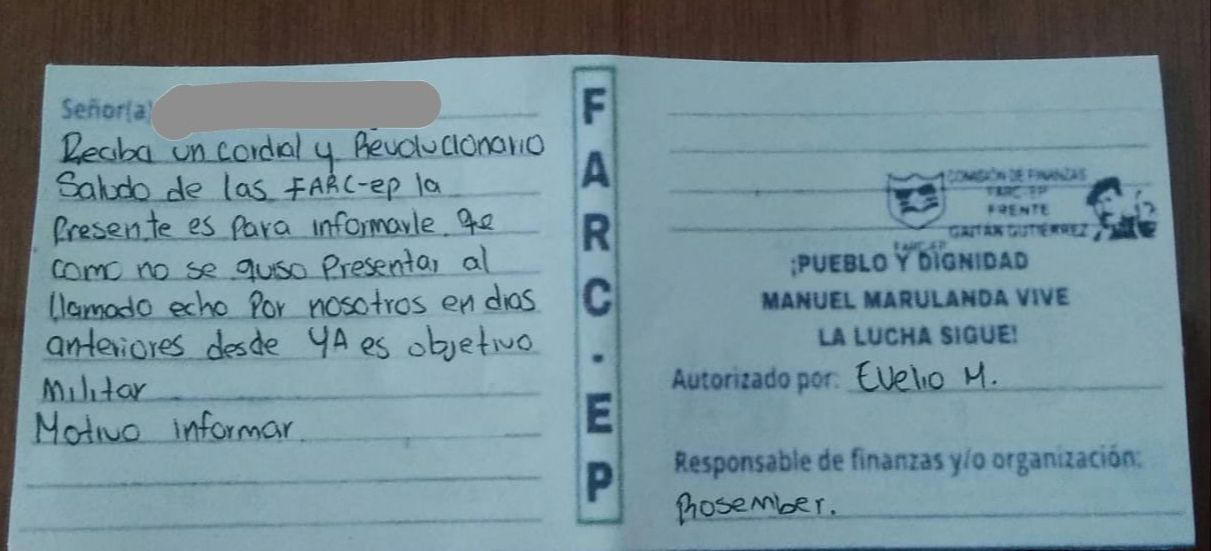 Señor(a)
Reciba un cordial y Revolucionario
Saludo de las FARC-ep la
Presente es para informarle qe
como no se quiso Presentar al
llamado echo Por nosotros en dias
anteriores desde YA es objetivo
Militar
Motivo informar
FARC-EP
COMISIÓN DE FINANZAS
FARC-EP
FRENTE
GAITÁN GUTIÉRREZ
FARC-EP
¡PUEBLO Y DIGNIDAD
MANUEL MARULANDA VIVE
LA LUCHA SIGUE!
Autorizado por: Evelio M.
Responsable de finanzas y/o organización:
Rosember.